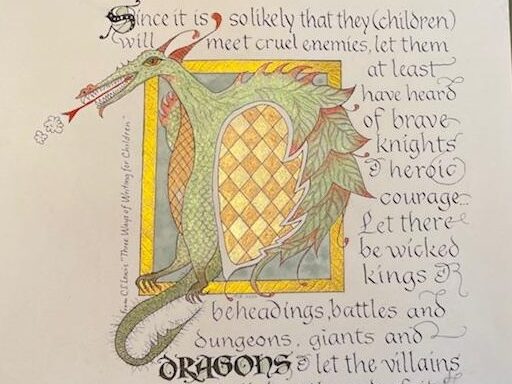 Since it is solikely that they (children)
will meet cruel enemies, let them
at least
have heard
of brave
knights
& heroic
courage.
Let there
be wicked
kings &
beheadings, battles and
dungeons, giants and
DRAGONS & let the villains
From C.S. Lewis "Three Ways of Writing for Children"